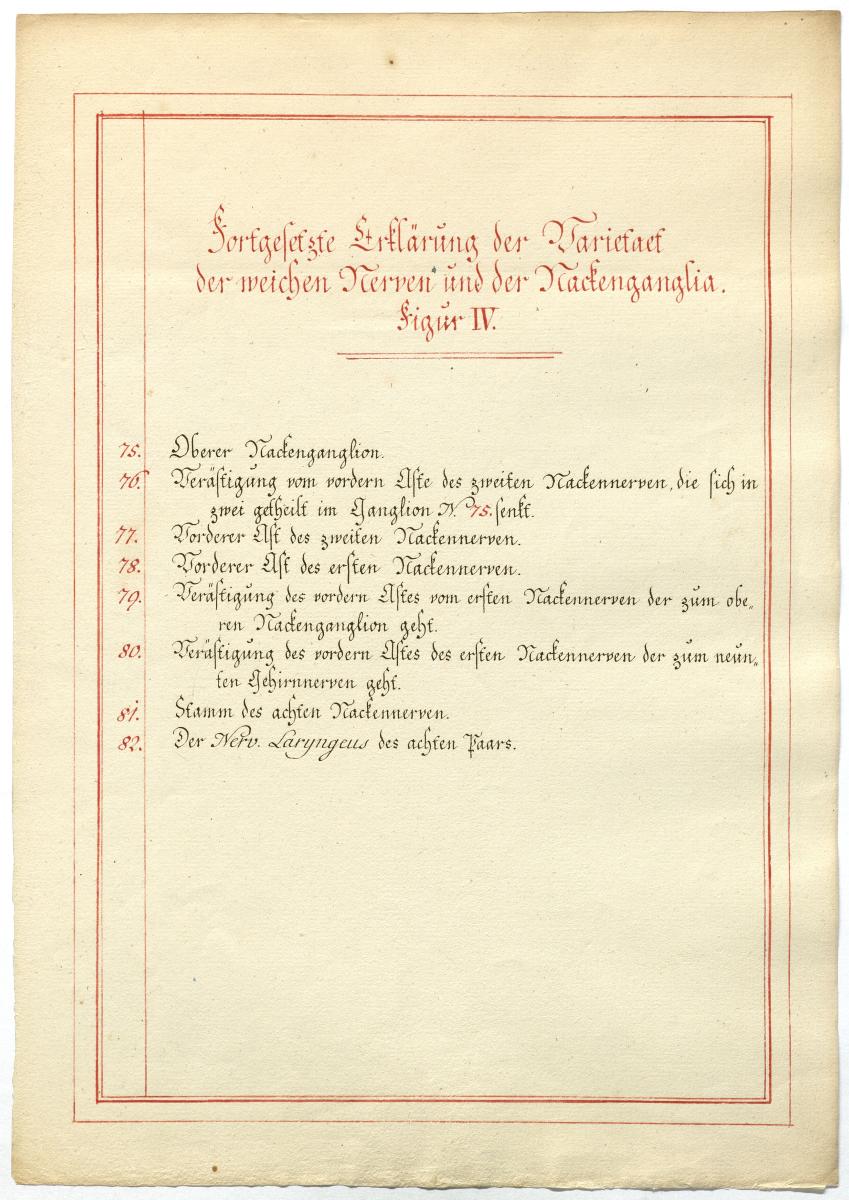 Fortgesetzte Erklärung der Varietaet
der weichen Nerven und der Nackenganglia.
Figur IV.
75. Oberer Nackenganglion.
76. Verästigung vom vordern Aste des zweiten Nackennerven, die sich in
zwei getheilt im Ganglion N. 75. senkt.
77. Vorderer Ast des zweiten Nackennerven.
78. Vorderer Ast des ersten Nackennerven.
79. Verästigung des vordern Astes vom ersten Nackennerven der zum obe„
ren Nackenganglion geht.
80. Verästigung des vordern Astes des ersten Nackennerven der zum neun„
ten Gehirnnerven geht.
81. Stamm des achten Nackennerven.
82. Der Nerv. Laryngeus des achten Paars.